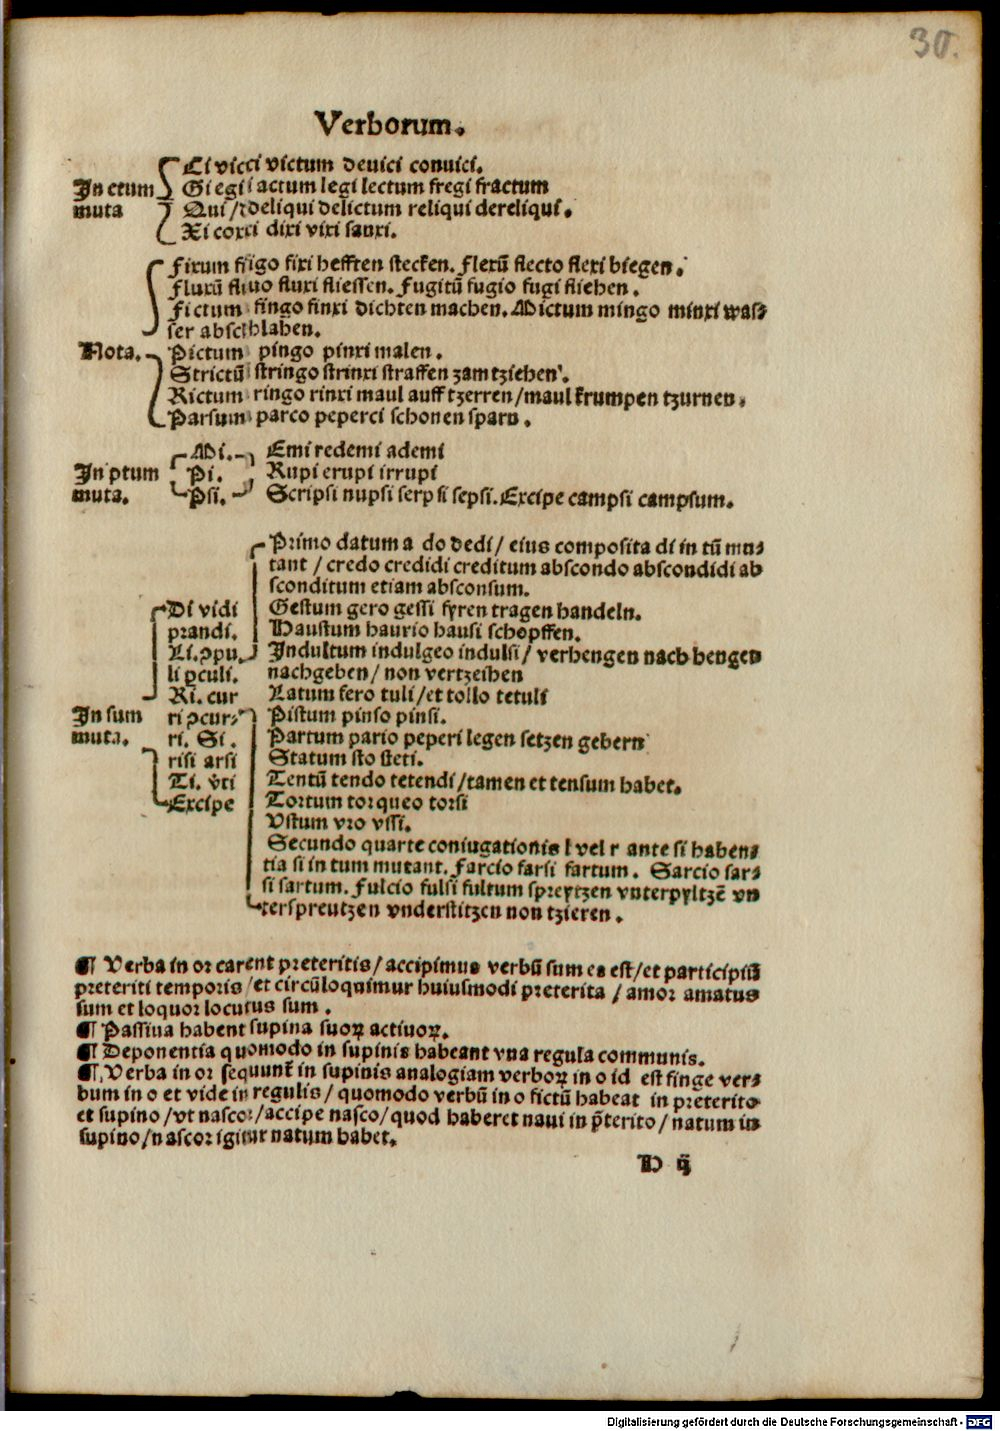 30.
Verborum.
Ci vicci victum deuici conuici.
In ctum Gi egi actum legi lectum fregi fractum
muta Qui / deliqui delictum reliqui dereliqui.
Xi coxi dixi vixi sanxi.
Fixum figo fixi hefften stecken. Flexū flecto flexi biegen.
Fluxū fluo fluxi fliessen. Fugitū fugio fugi fliehen.
Fictum fingo finxi dichten machen. Mictum mingo minxi was⸗
ser abschlahen.
Nota. Pictum pingo pinxi malen.
Strictū stringo strinxi straffen zam tziehen.
Rictum ringo rinxi maul auff tzerren/maul krumpen tzurnen.
Parsum parco peperci schonen sparn.
Mi. Emi redemi ademi
In ptum Pi. Rupi erupi irrupi
muta. Psi. Scripsi nupsi serpsi sepsi. Excipe campsi campsum.
Primo datum a do dedi / eius composita di in tū mu⸗
tant / credo credidi creditum abscondo abscondidi ab
sconditum etiam absconsum.
Di vidi Gestum gero gessi fyren tragen handeln.
prandi. Haustum haurio hausi schepffen.
Li. ꝓpu Indultum indulgeo indulsi / verhengen nach hengen
li ꝑculi. nachgeben / non vertzeihen
Ri. cur Latum fero tuli / et tollo tetuli
In sum ri ꝓcur⸗ Pistum pinso pinsi.
muta. ri. Si. Partum pario peperi legen setzen gebern
risi arsi Statum sto steti.
Ti. v̓ti Tentū tendo tetendi / tamen et tensum habet.
Excipe Tortum torqueo torsi
Vstum vro vssi.
Secundo quarte coniugationis l vel r ante si haben⸗
tia si in tum mutant. Farcio farsi fartum. Sarcio sar⸗
si sartum. Fulcio fulsi fultum spreytzen vnterpyltzē vn
terspreutzen vnderstitzen non tzieren.
¶ Verba in or carent preteritis / accipimus verbū sum es est / et participiū
preteriti temporis / et circūloquimur huiusmodi preterita / amor amatus
sum et loquor locutus sum.
¶ Passiua habent supina suoꝝ actiuoꝝ.
¶ Deponentia quomodo in supinis habeant vna regula communis.
¶ Verba in or sequunt̄ in supinis analogiam verboꝝ in o id est finge ver⸗
bum in o et vide in regulis / quomodo verbū in o fictū habeat in preterito
et supino / vt nascor / accipe nasco / quod haberet naui in p̄terito / natum in
supino / nascor igitur natum habet.
H ij
Digitalisierung gefördert durch die Deutsche Forschungsgemeinschaft - DFG